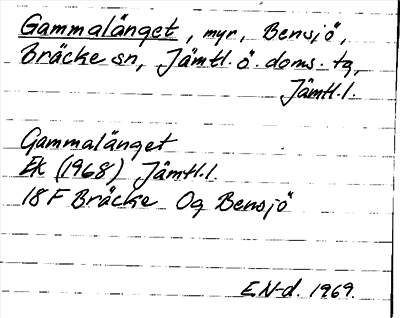 Gammalänget, myr, Bensjö,
Bräcke sn, Jämtl. ö. doms. tg,
Jämtl. l.
Gammalänget
Ek (1968) Jämtl. l.
18 F Bräcke Og Bensjö
E.N-d. 1969.